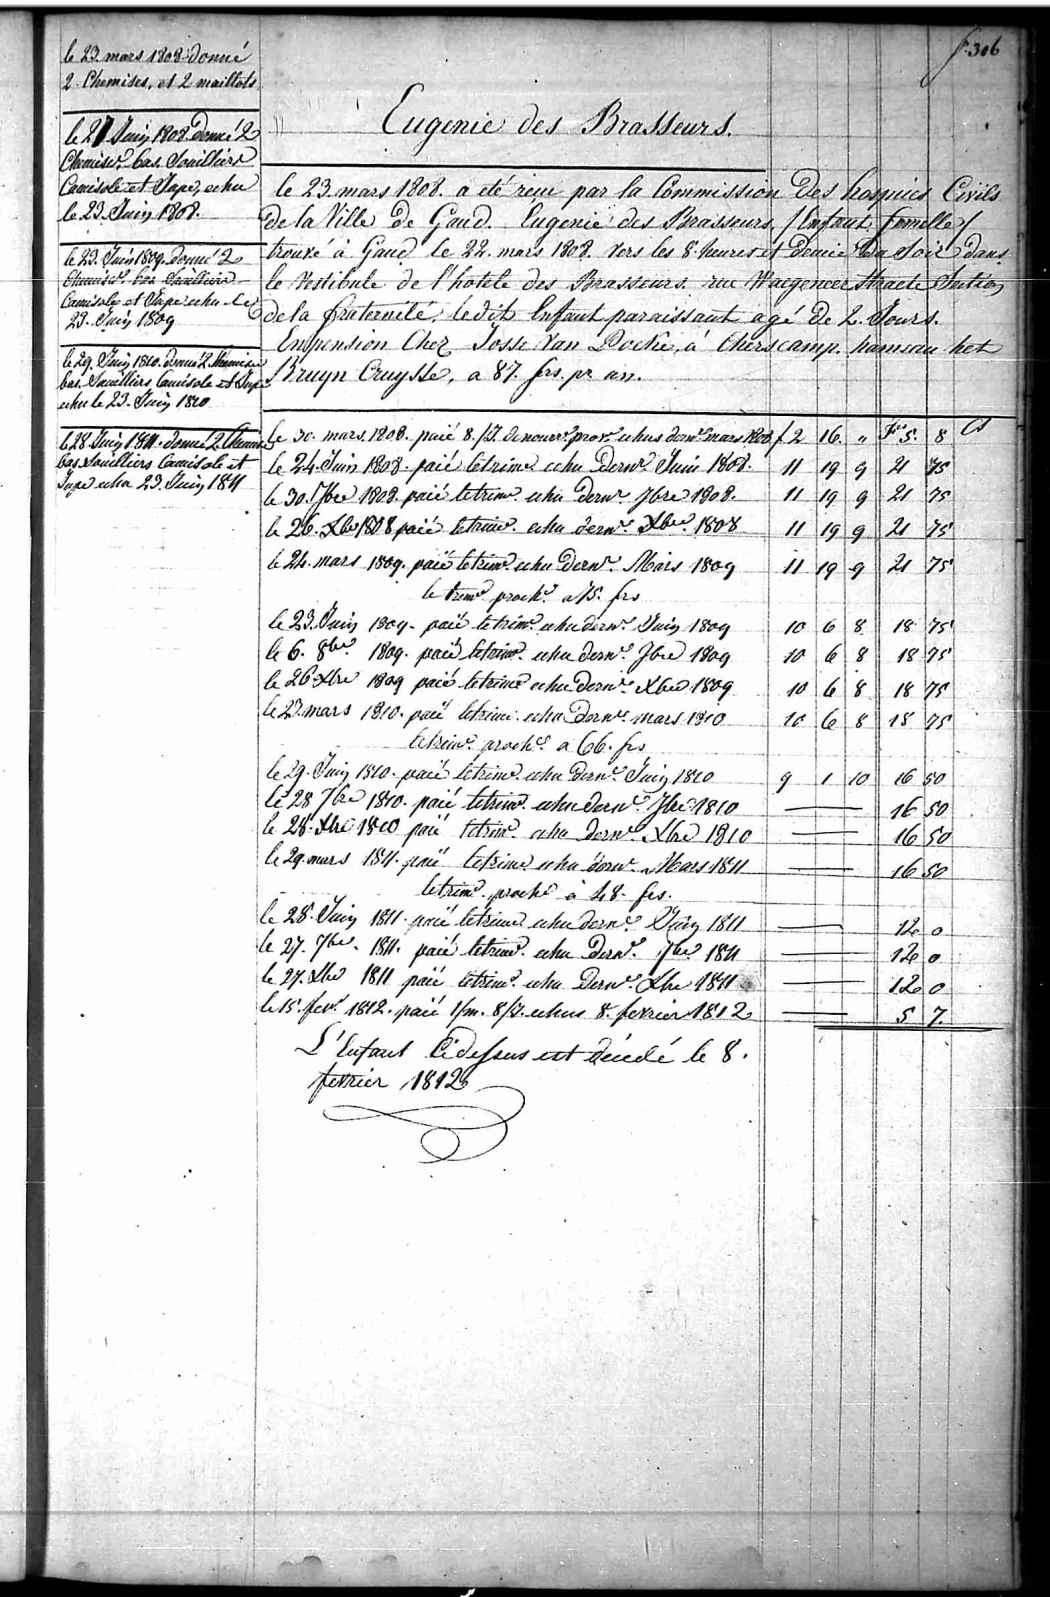 f. 306
le 23. mars 1808 donné
2. Chemises, et 2 maillots
le 27 Juin 1808 donné 2
Chemises bas Souilliers
Camisole et Jupe, echu
le 23. Juin 1808.
le 23. Juin 1809. donné 2
Chemises bas Souilliers
Camisole et Jupe echu. le
23. Juin 1809
le 29. Juin 1810. donné 2. Chemises
bas. Souilliers Camisole et Jupe
echu le 23. Juin 1810
le 28 Juin 1811. donné 2. Chemises
bas Souilliers Camisole et
Jupe echu 23. Juin 1811
Eugenie des Brasseurs.
le 23. mars 1808. a été reçu par la Commission des hospices Civils
de la Ville de Gand. Eugenie des Brasseurs, /Enfant femelle/
trouvé à Gand le 22. mars 1808. vers les 8. heures et demie Du Soir dans
le Vestibule de l'hotele des Brasseurs. rue Waegeneer Straete Section
de la fraternité, ledit Enfant paraissant agé de 2. Jours.
En pension Chez Josse Van Dockë, à Cherscamp. hameau het
Bruyn Cruysse, a 87. frs. pr. an.
le 30. mars. 1808. paié 8./J. de nourre. prov. echus dernr. mars 1808 f. 2 16. „ Frs. 5. 8 Cs
le 24. Juin 1808. paié le trime echu Dernr. Juin 1808. 11 19 9 21 75
le 30. 7bre 1808. paié le trime. echu dernr. 7bre 1808. 11 19 9 21 75
le 26. Xbre 1808 paié le trime. echu dernr. Xbre. 1808 11 19 9 21 75
le 24. mars 1809. paié le trime. echu Dernr. Mars 1809 11 19 9 21 75
le trime. proche. a 75. frs
le 23. Juin 1809. paié le trime. echu dernr. Juin 1809 10 6 8 18 75
le 6. 8bre. 1809. paié le trime. echu dernr. 7bre 1809 10 6 8 18 75
le 26. Xbre 1809 paié le trime echu dernr. Xbre 1809 10 6 8 18 75
le 23. mars 1810. paié le trime. echu Dernr. mars 1810 10 6 8 18 75
le trime. proche. a 66. frs
le 29. Juin 1810. paié le trime. echu dernr. Juin 1810 9 1 10 16 50
le 28 7bre 1810. paié le trime. echu dernr. 7bre 1810 16 50
le 28. Xbre 1810 paié le trime. echu dernr. Xbre 1810 16 50
le 29. mars 1811. paié le trime echu dernr. Mars 1811 16 50
le trime. proche à 48. frs.
le 28. Juin 1811. paié le trime echu dernr. Juin 1811 12 0
le 27. 7bre. 1811. paié le trime. echu Dernr. 7bre 1811 12 0
le 27. Xbre 1811 paié le trime. echu Dernr. Xbre 1811 12 0
le 15. fevr. 1812. paié 1/m. 8/J. echus 8. fevrier 1812 5 7.
L'Enfant Cidessus est décédé le 8.
fevrier 1812